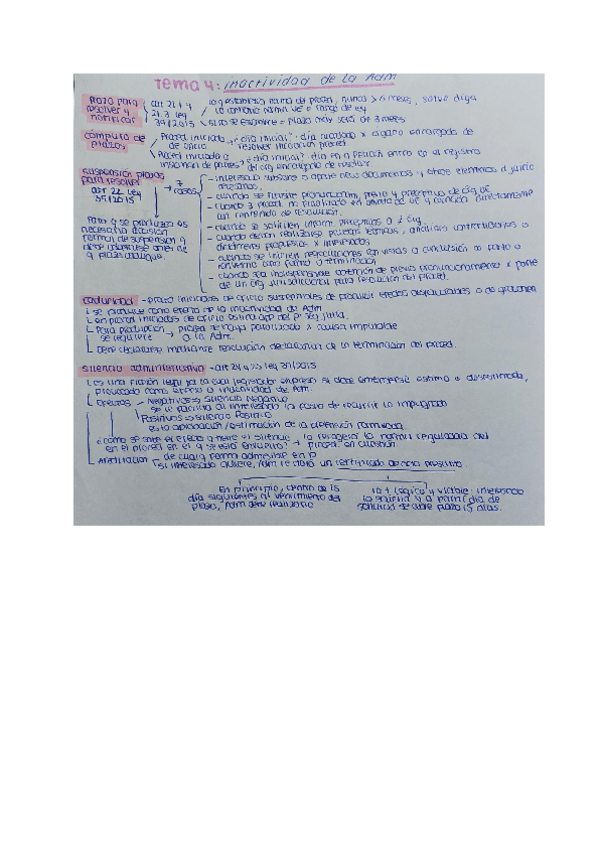 Tema 4: inactividad de la Adm
Plazo para resolver y notificar
art 21 y 4
21.3 ley
39/2015
lo q establezca norma del proced, nunca > 6 meses, salvo diga
lo contrario norma UE o rango de ley
si no se establece = plazo máx será de 3 meses
Cómputo de plazos
Proced. iniciado de oficio → ¿día inicial? día acuerdo x órgano encargado de
resolver iniciación proced.
Proced iniciado a instancia de partes → ¿día inicial? día en q petición entra en el registro
del org encargado de resolver
Suspensión plazos
para resolver
art 22 ley
39/2015
7 casos
Para q se produzca es
necesaria decisión
formal de suspensión y
antes de
q plazo concluya.
- interesado subsane o aporte new documentos y otros elementos d juicio
necesarios.
- cuando se solicite pronunciam. previo y preceptivo de órg UE
- cuando proced. no finalizado en ámbito de UE y condicia directamente
un contenido de resolución.
- cuando se soliciten inform. preceptivos a órg.
- cuando deban realizarse pruebas técnicas, análisis contradictorios o
dirimentes propuestos x interesados
- cuando se inicien negociaciones con vistas a conclusión de pacto o
convenio
- cuando sea indispensable obtención de previo pronunciamiento x parte
de un órg jurisdiccional para resolución del proced.
Caducidad - proced iniciados de oficio susceptibles de producir efectos desfavorables o de gravamen
se produce como efecto de la inactividad de Adm
en proced iniciados de oficio
Para producción → proced se haya paralizado x causa imputable
se requiere a la Adm.
Debe declararse mediante resolución declarativa de la terminación del proced.
Silencio administrativo - art 24 y 25 ley 39/2015
es una ficción legal x la cual legislador expresa si debe entenderse estima o desestimada,
provocado como efecto a inactividad de Adm.
Efectos - Negativos → Silencio Negativo
se le facilita al interesado la posib de recurrir lo impugnado
Positivos → Silencio Positivo
es la aprobación/estimación de la petición formulada.
¿Cómo se sabe el efecto q tiene el silencio → lo recogerá la norma reguladora del
en el proced en el q se está envuelto? → proced en cuestión
Acreditación - de cualq forma admisible en D
si interesado quiere, Adm le dará un certificado de acto presunto
En principio, dentro de 15
día siguientes al vencimiento del
plazo, Adm debe realizarlo
lo + lógico y viable: interesado
lo solicita y a partir día de
solicitud se abre plazo 15 días.